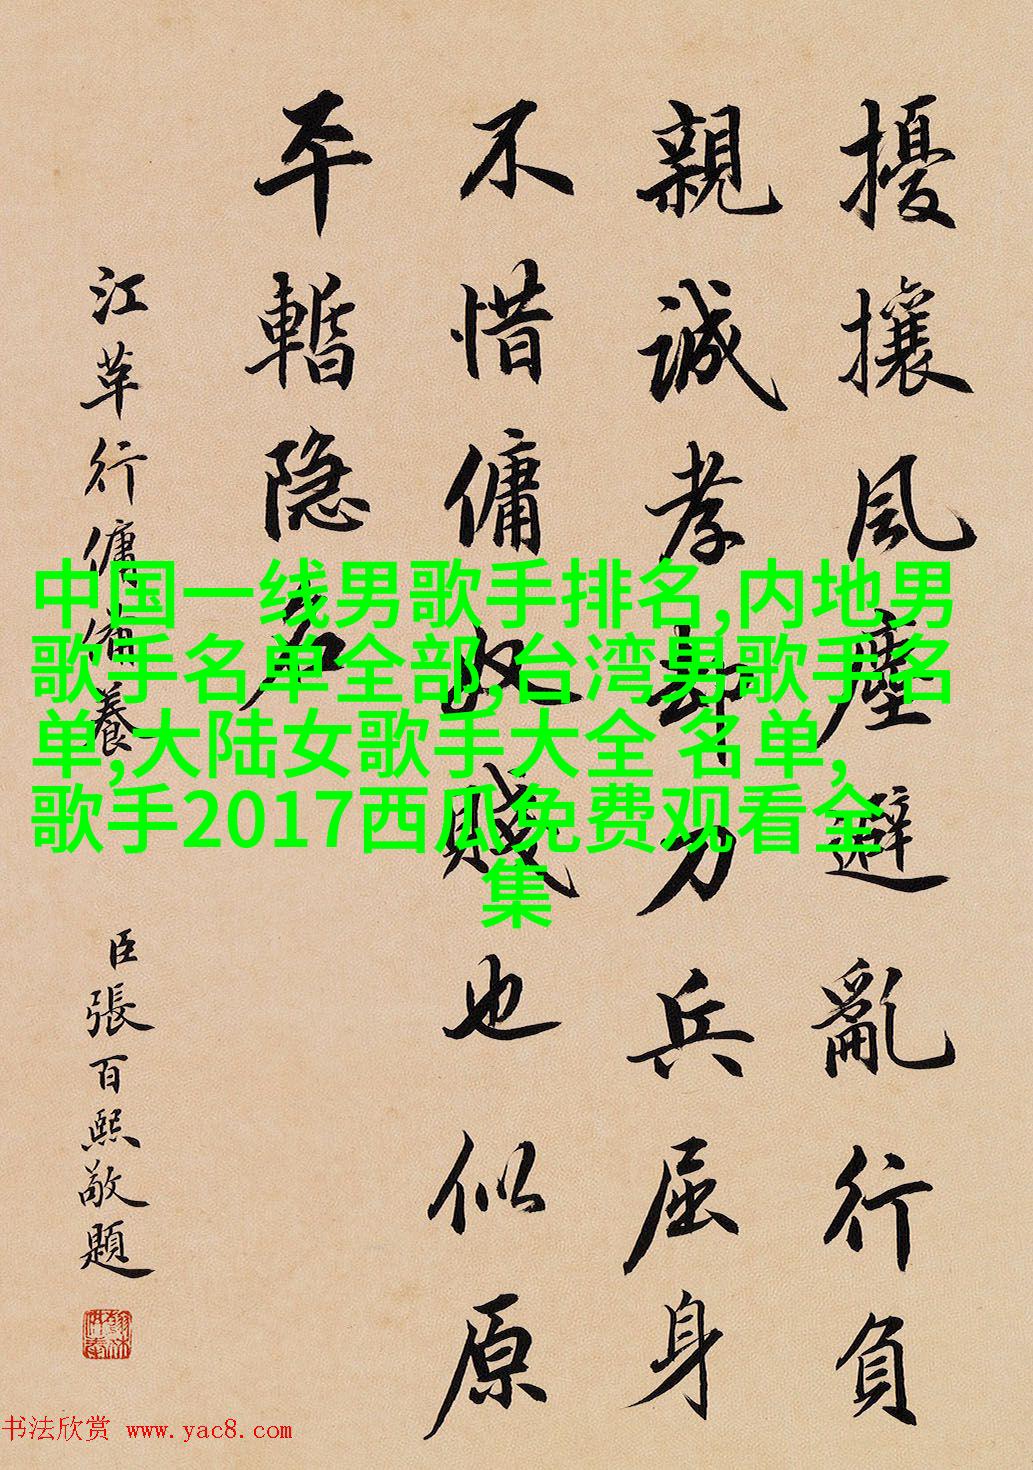 擾攘風塵避亂行負
親誠孝却刀兵屈身
不惜傭奴賤也似原
平暫隐名
江革行傭備養
臣張百熙敬題
中国一线男歌手排名,内地男
歌手名单全部,台湾男歌手名
单,大陆女歌手大全 名单,
歌手2017西瓜免费观看全
集
书法欣赏 www.yac8.com